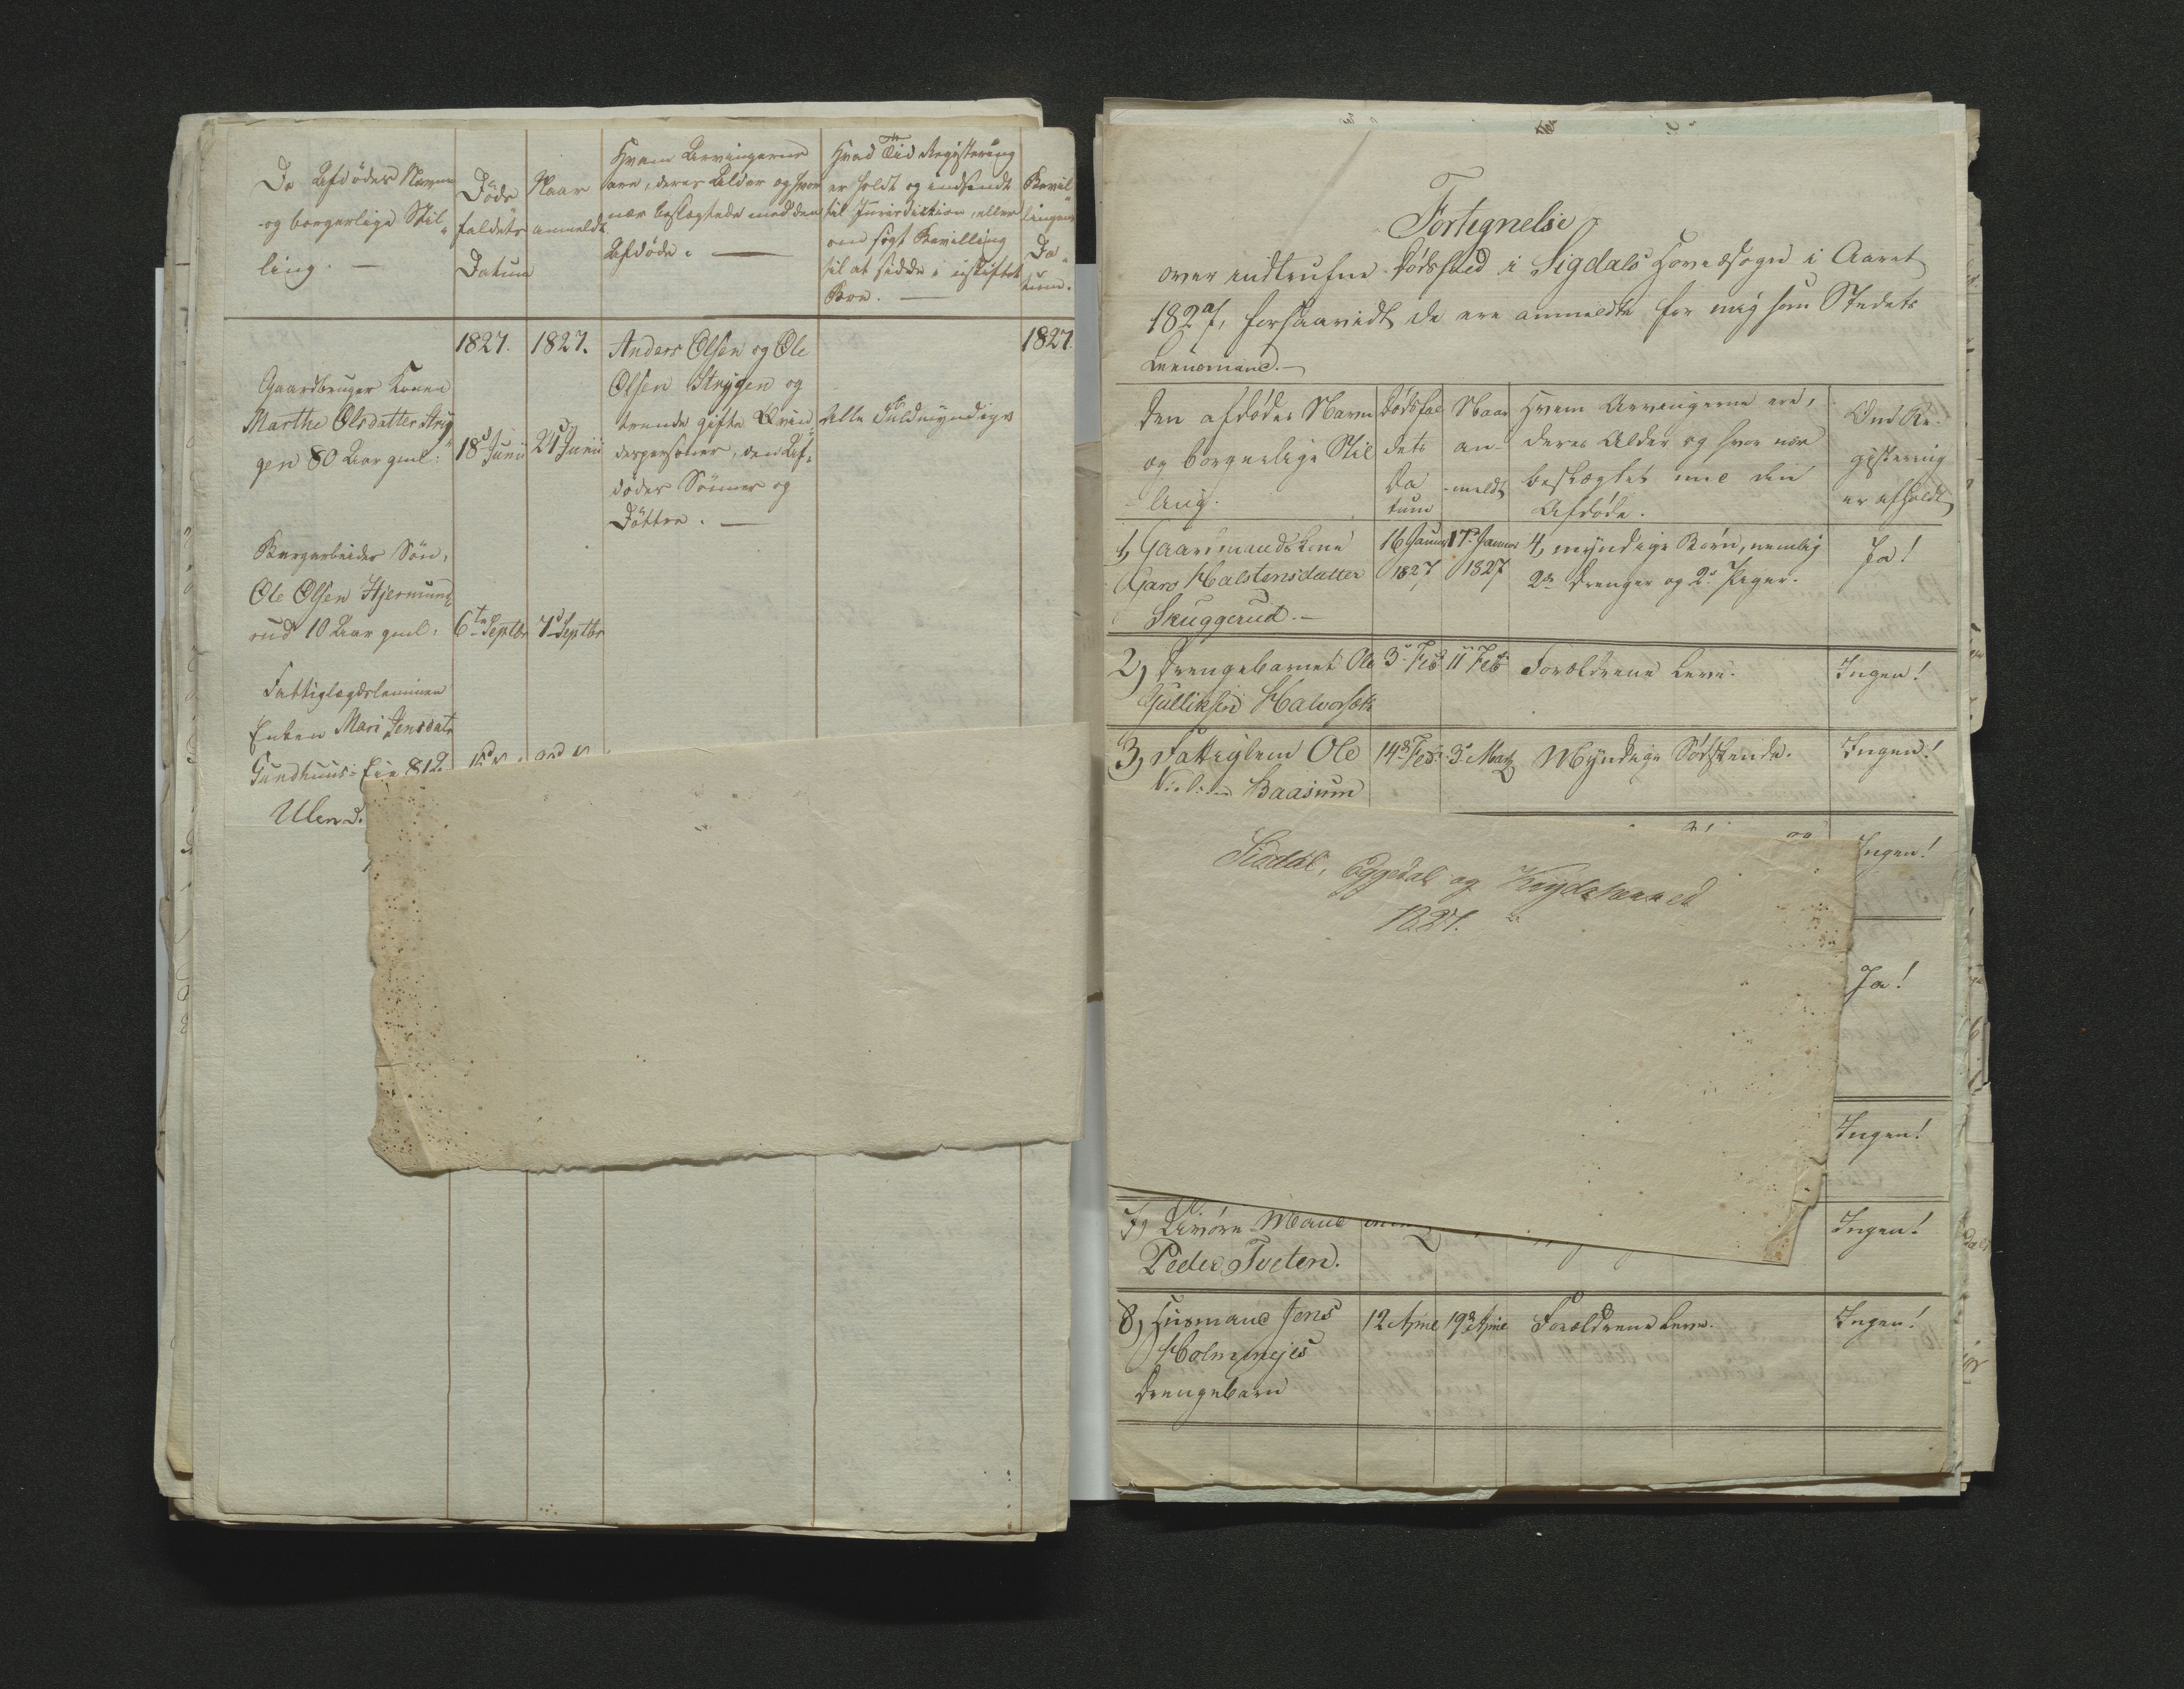 De Afdödes Navne
og borgerlige Stil-
ling. —
Döds
faldets
Datum
Naar
anmeldt
Hvem Arvingerne
ere, deres Alder og hvor
nær beslægtede med den
Afdöde. —
Hvad Tid Registering
er holdt og indsendt
til Jurisdiction, eller
om søgt Bevilling
til at sidde i uskiftet
Boe. —
Bevil-
lingens
Da-
tum.
1827.
1827.
1827.
Gaardbruger Konen
Marthe Olsdatter Stry-
gen 80 Aar gml:
18d Junii
24d Junii
Anders Olsen og Ole
Olsen Strygen og
trende gifte Qvin-
despersoner, den Af-
dødes Sönner og
Döttre. —
Alle Fuldmyndige
Bergarbeider Sön,
Ole Olsen Hjermund-
rud 10 Aar gml.
6te Septbr
7d Septbr
Fattiglægdslemmen
Enken Mari Jensdatr
Ulen
Fortegnelse
over indtrufne Dødsfald i Sigdals Hovedsogn i Aaret
1827, forsaavidt de ere anmeldte for mig som Stedets
Leensmand. —
Den afdødes Navn
og borgerlige Stil
ling.
Dødsfal
dets
Da
tum
Naar
an-
meldt
Hvem Arvingerne ere,
deres Alder og hvor nær
beslægtet med den
Afdøde.
Om Re-
gistering
er afholdt
1, Gaardmandskone
Kari Halstensdatter
Skuggerud. —
16 Januar
1827
17d Januar
1827
4 myndige Børn, nemlig
2de Drenge og 2de Piger.
Ja!
2, Drengebarnet Ole
Gulliksen Halvorsek
3d Feb:
11 Feb:
Forældrene leve.
Ingen!
3, Fattiglem Ole
Baasum
14d Feb:
3d Martz
Myndige Sødskende.
Ingen!
Sigdal, Eggedal og Krydsherred
1827.
Ingen!
Ja!
Ingen!
7,
Peder Tveten.
Ingen!
8, Husmand Jens
Holmsnejes
Drengebarn
12 Apriel
19d Apriel
Forældrene leve.
Ingen!